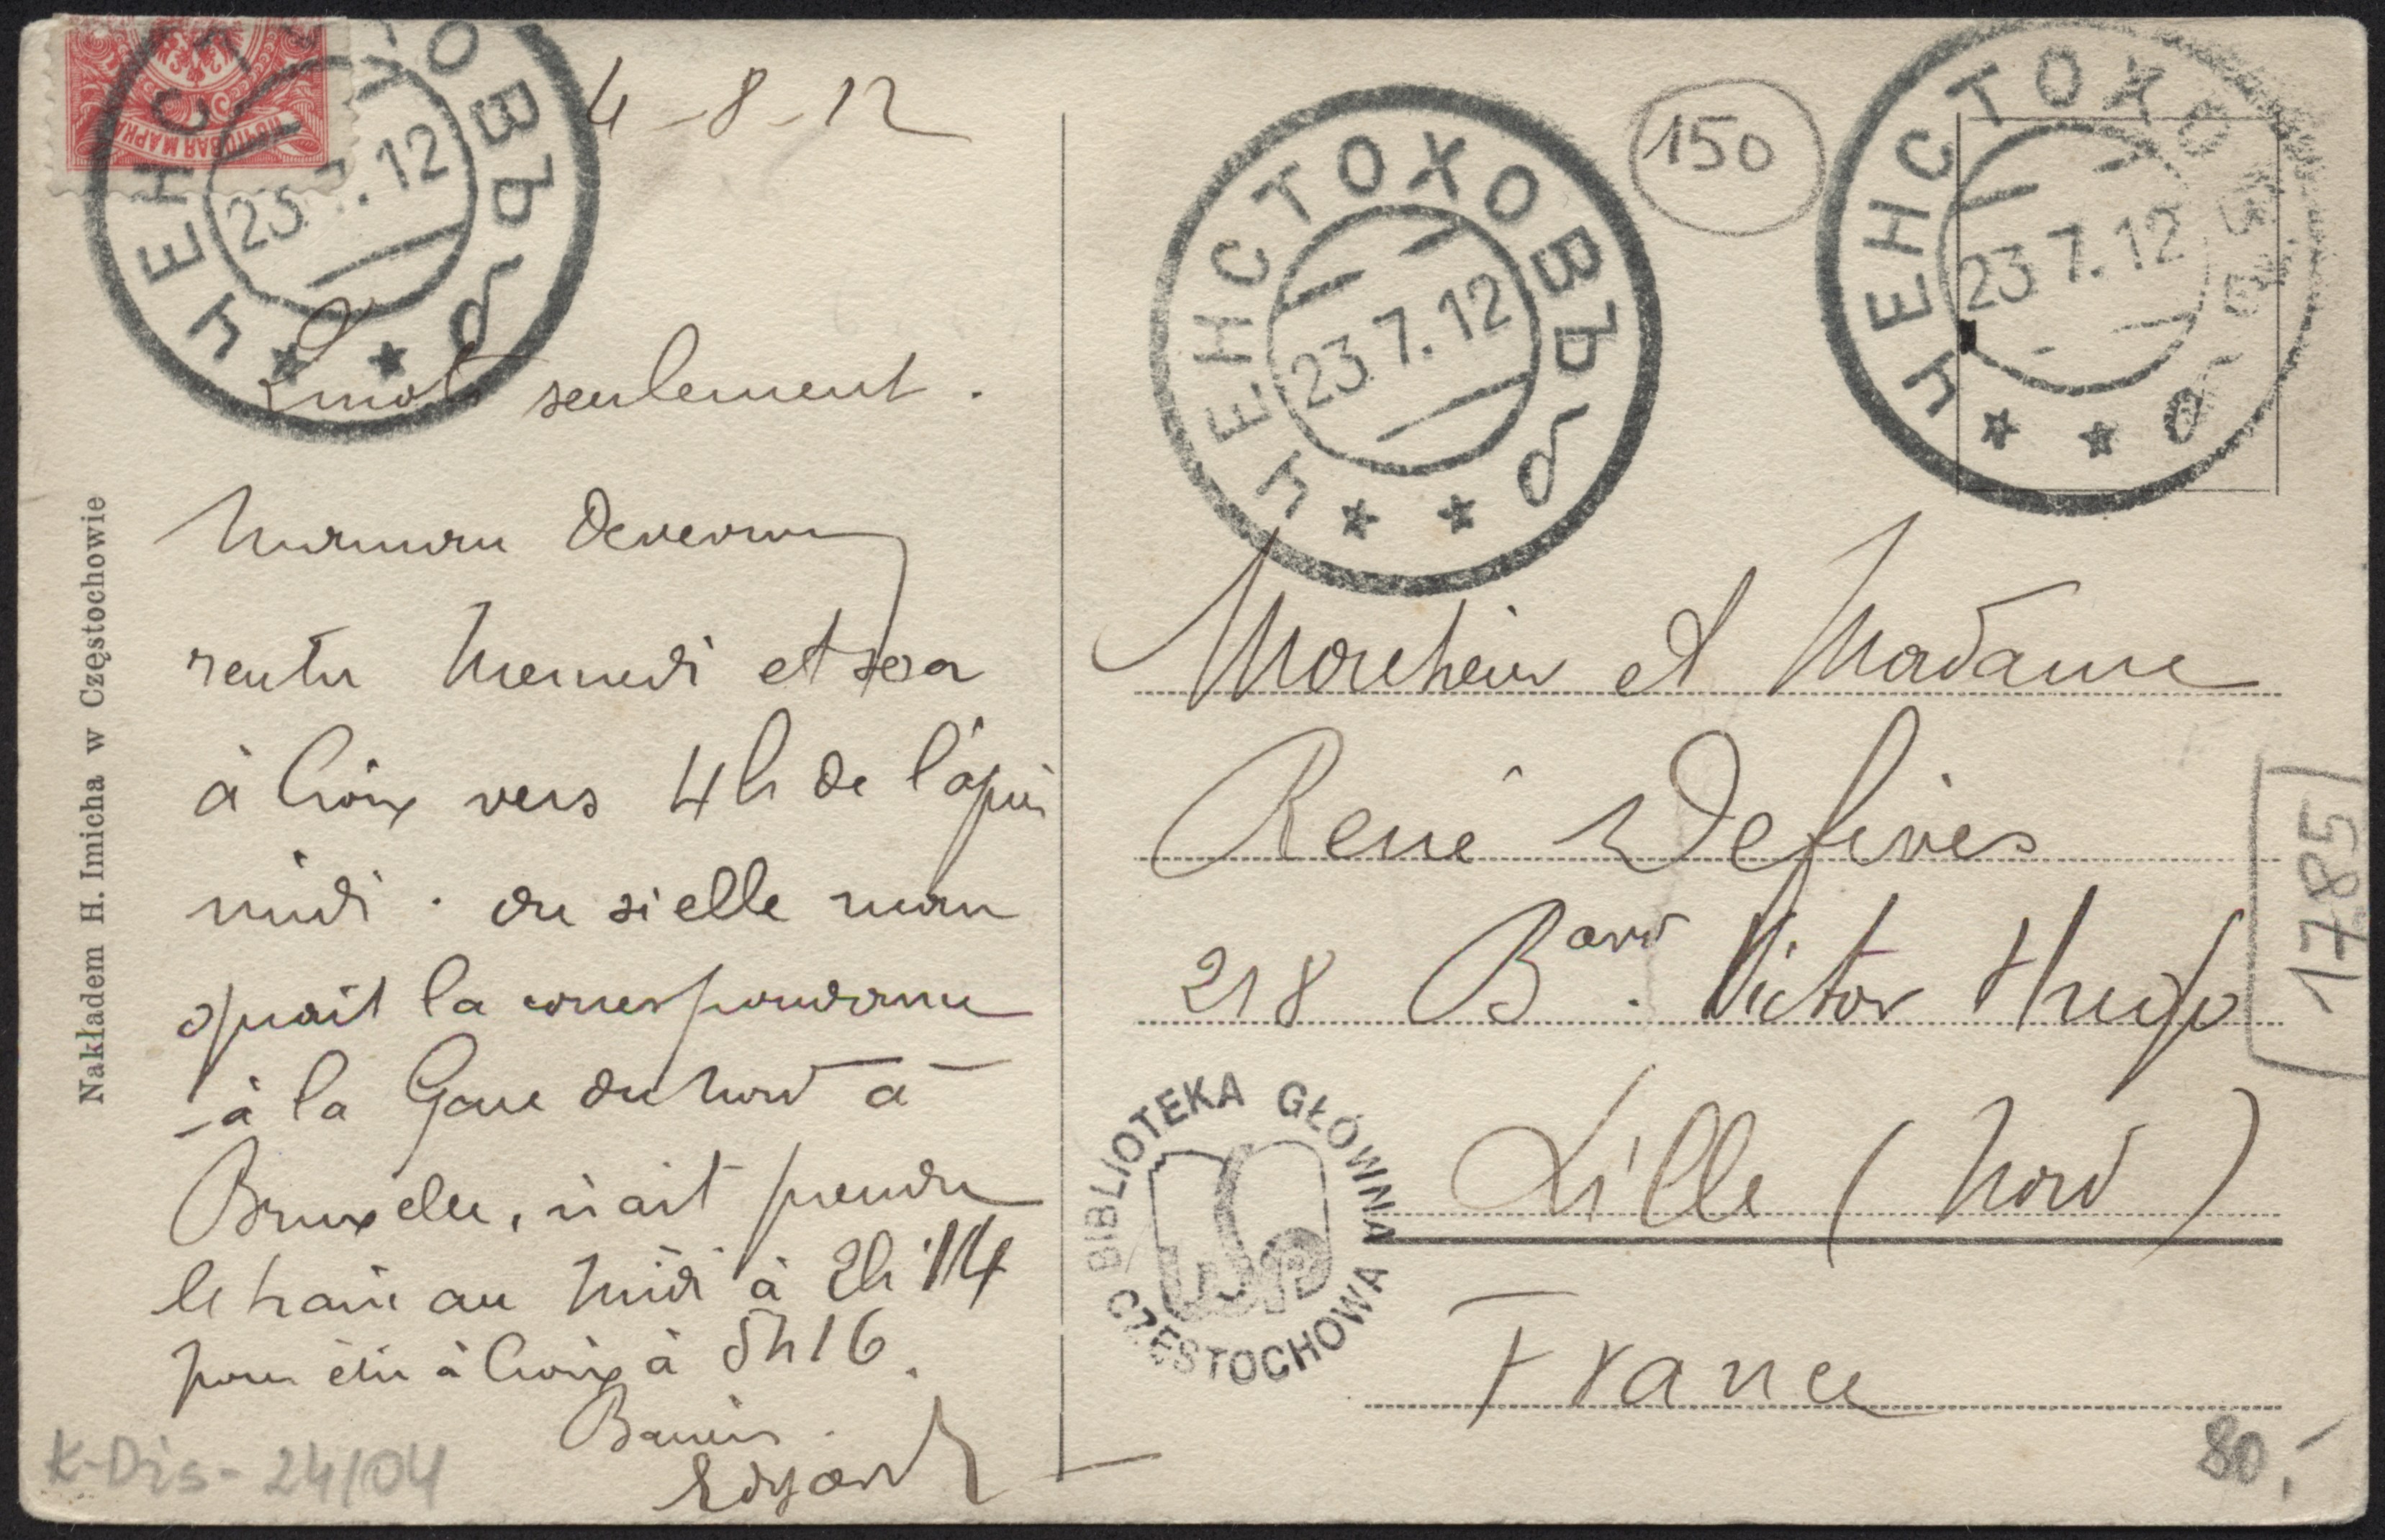 ПОЧТОВАЯ МАРКА
ЧЕНСТОХОВЪ б
23.7.12
4-8-12
2 mots seulement.
Maman
rentre Mercredi et sera
à Croix vers 4h de l'après
midi. ou si elle man
quait la correspondance
à la Gare du Nord à
Bruxelles, irait prendre
le train au Midi à 2h 14
pour être à Croix à 5h16.
Baisers.
Edgard
Nakładem H. Imicha w Częstochowie
K-Dis-24/04
ЧЕНСТОХОВЪ б
23.7.12
150
ЧЕНСТОХОВЪ б
23.7.12
Monsieur et Madame
René Defives
218 Bard. Victor Hugo
Lille (Nord)
France
1785
BIBLIOTEKA GŁÓWNA
WSP
CZĘSTOCHOWA
80,-